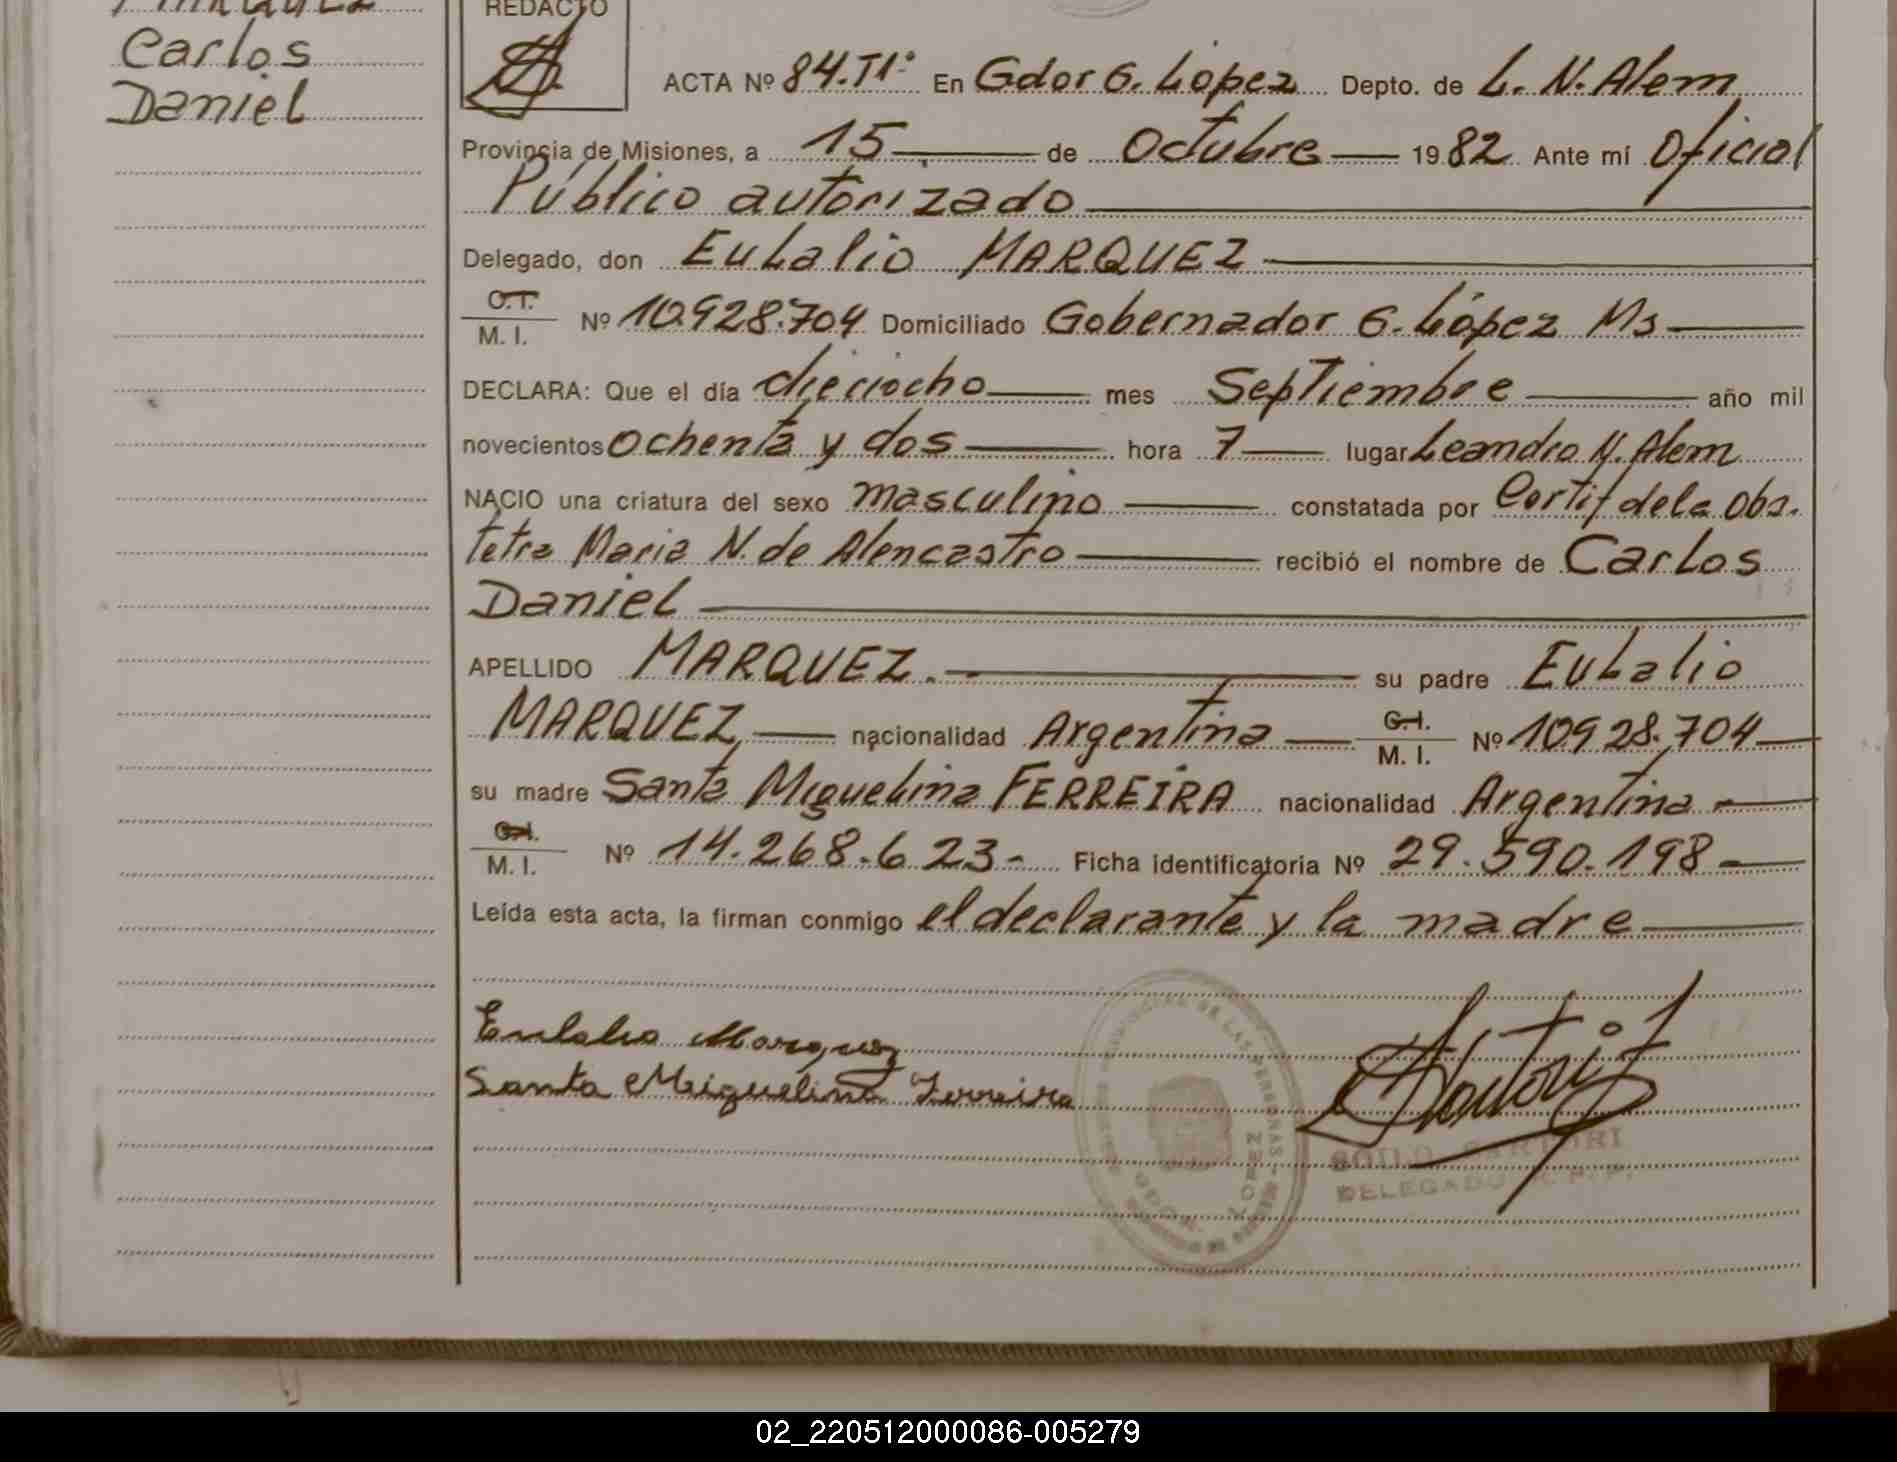 Carlos
Daniel
REDACTO
ACTA Nº 84.T1º En Gdor G. López Depto. de L. N. Alem
Provincia de Misiones, a 15 de Octubre 1982 Ante mí Oficial
Público autorizado
Delegado, don Eulalio MARQUEZ
C.I.
M. I. Nº 10.928.704 Domiciliado Gobernador G. López Ms
DECLARA: Que el día dieciocho mes Septiembre año mil
novecientos ochenta y dos hora 7 lugar Leandro N. Alem
NACIO una criatura del sexo masculino constatada por Certif de la Obs.
tetra Maria N. de Alencastro recibió el nombre de Carlos
Daniel
APELLIDO MARQUEZ. su padre Eulalio
MARQUEZ, nacionalidad Argentina C.I.
M. I. Nº 10.928.704
su madre Santa Miguelina FERREIRA nacionalidad Argentina
C.I.
M. I. Nº 14.268.623- Ficha identificatoria Nº 29.590.198
Leída esta acta, la firman conmigo el declarante y la madre
Eulalio Marquez
Santa Miguelina Ferreira
DE LAS PERSONAS
GDOR. LOPEZ
SARTORI
DELEGADO R. P. P.
02_220512000086-005279